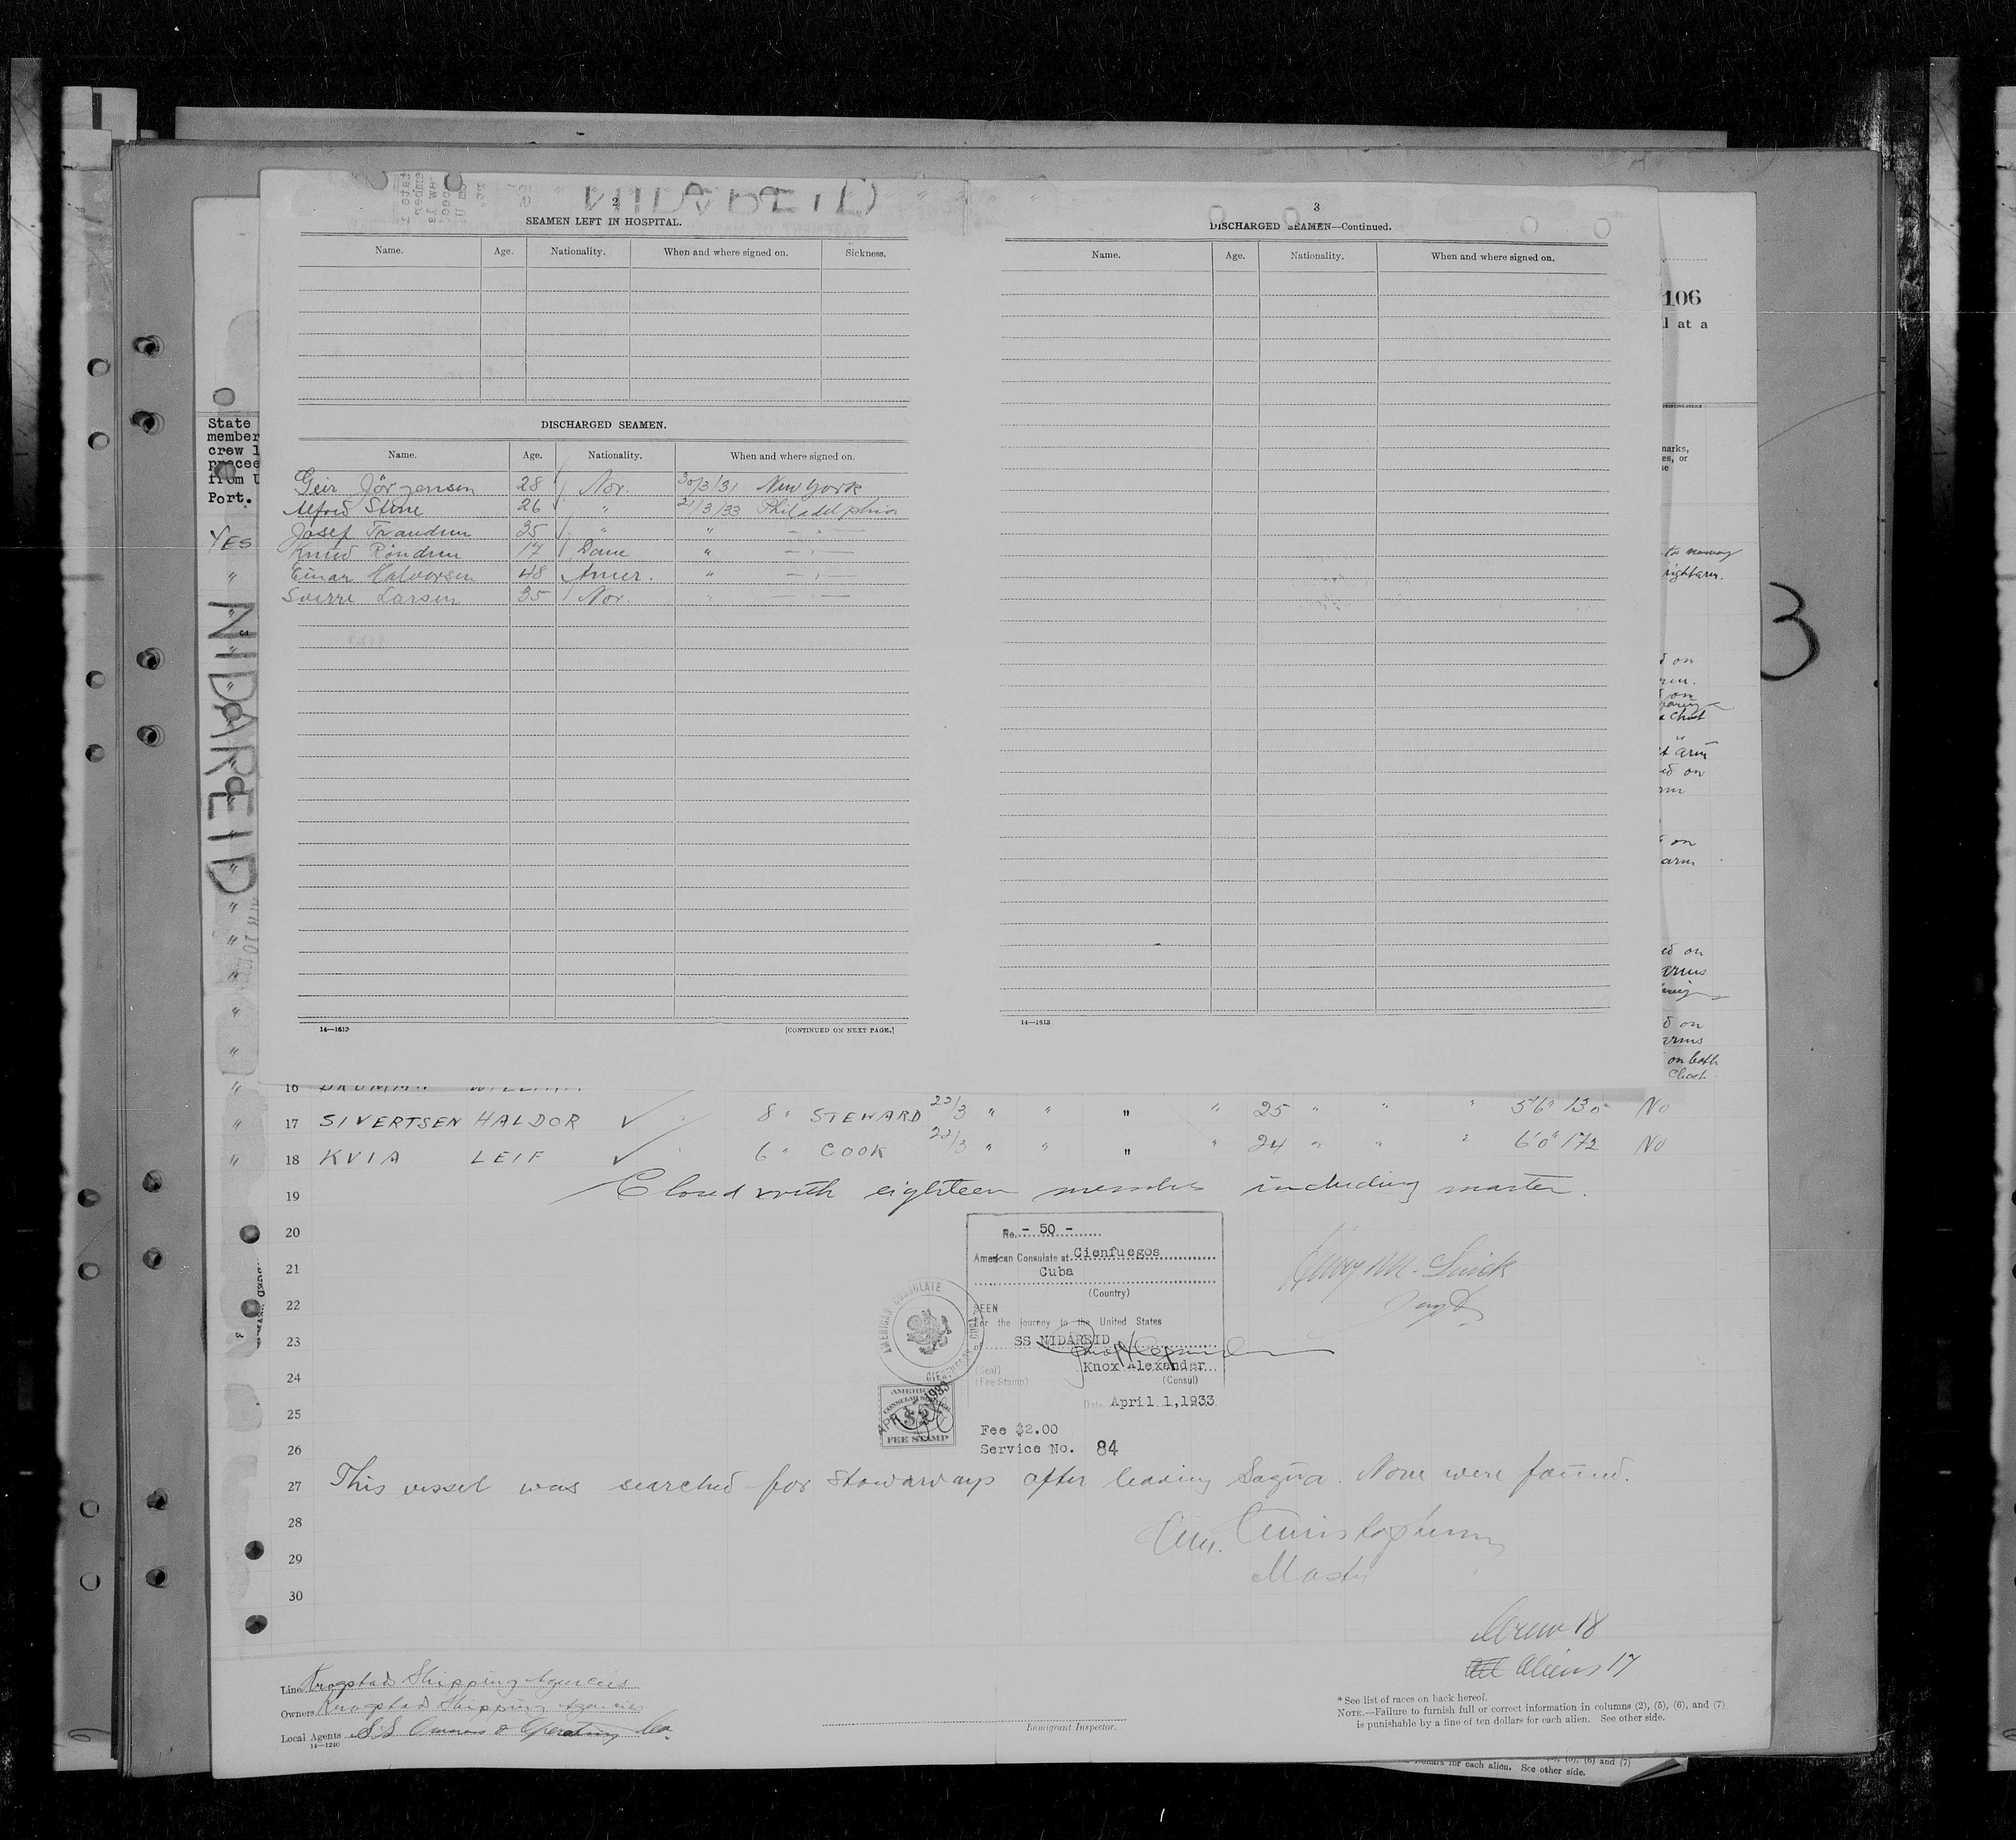 NIDAREID
2
SEAMEN LEFT IN HOSPITAL.
Name. Age. Nationality. When and where signed on. Sickness.
DISCHARGED SEAMEN.
Name. Age. Nationality. When and where signed on.
Geir Jörgensen 28 Nor. 30/3/31 New York
Alfred Stene 26 " 21/3/33 Philadelphia
Josef Trandum 35 " " — " —
Knud Röndrum 17 Dane " — " —
Einar Halvorsen 48 Amer. " — " —
Sverre Larsen 35 Nor. " — " —
14—1613 [CONTINUED ON NEXT PAGE.]
3
DISCHARGED SEAMEN—Continued.
Name. Age. Nationality. When and where signed on.
14—1613
106
l at a
marks,
es, or
State
member
crew l
procee
from U
Port.
YES
NIDAREID
to memory
right arm.
d on
& Chest
t arm
ed on
arm
on
arm
ed on
arms
d on
arms
on both
Chest
16
17 SIVERTSEN HALDOR 8 " STEWARD 22/3 " " " " 25 " " " 5'6" 130 No
18 KVIA LEIF 6 " COOK 22/3 " " " " 24 " " " 6'0" 172 No
19 Closed with eighteen members including master.
20
21
22
23
24
25
26
No. - 50 -
American Consulate at Cienfuegos
Cuba
(Country)
SEEN
For the journey to the United States
of SS NIDAREID
Knox Alexander
(Seal)
(Fee Stamp)
(Consul)
Date April 1,1933
Fee $2.00
Service No. 84
AMERICAN CONSULATE
CIENFUEGOS, CUBA
AMERICAN
CONSULAR SERVICE
$2
FEE STAMP
APR 1 1933
27 This vessel was searched for stowaways after leaving Sagua. None were found.
28
29 Master
30
Crew 18
Aliens 17
Line Krogstad Shipping Agencies
Owners Krogstad Shipping Agencies
Local Agents S.S. Owners & Operating Co.
14—1240
Immigrant Inspector.
* See list of races on back hereof.
NOTE.—Failure to furnish full or correct information in columns (2), (5), (6), and (7)
is punishable by a fine of ten dollars for each alien. See other side.
dollars for each alien. See other side.
(5), (6) and (7)
3